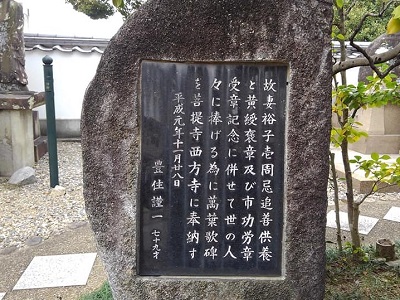 故妻裕子壱周忌追善供養
と黄綬褒章及び市功労章
受章記念に併せて世の人
々に捧げる為に萬葉歌碑
を菩提寺西方寺に奉納す
平成元年十一月廿八日
豊住謹一 七十九才